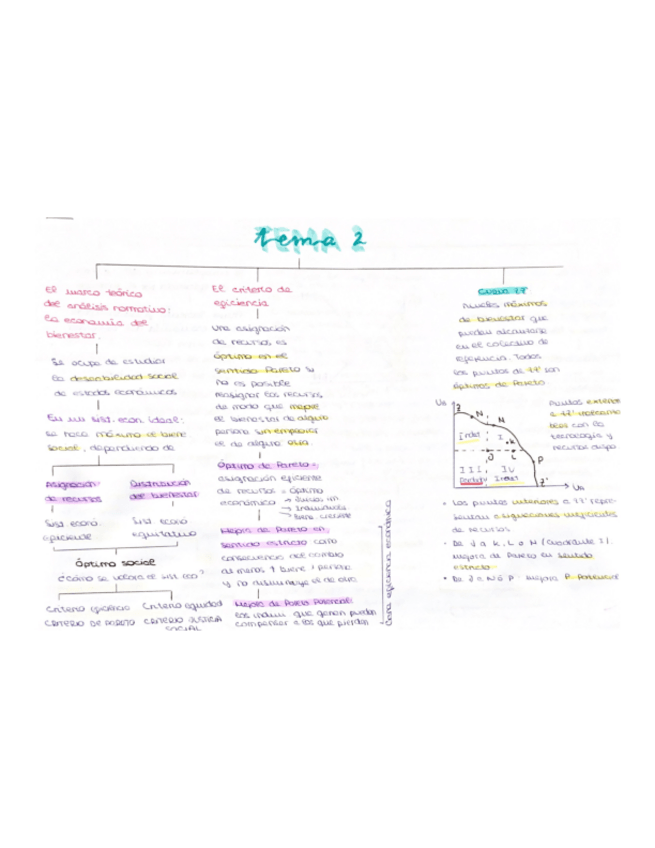 tema 2
El marco teórico
del análisis normativo:
la economía del
bienestar.
Se ocupa de estudiar
la deseabilidad social
de estados económicos
En un sist. econ. ideal:
se hace máximo el biene
social, dependiendo de
Asignación
de recursos
Distribución
del bienestar
Sist. econó.
eficiente
Sist. econó
equitativo
Óptimo social
¿Cómo se valora el sist. eco?
Criterio eficiencia
CRITERIO DE PARETO
Criterio equidad
CRITERIO JUSTICIA
SOCIAL
El criterio de
eficiencia
Una asignación
de recursos es
óptima en el
sentido Pareto si
no es posible
reasignar los recursos
de modo que mejore
el bienestar de alguna
persona sin empeorar
el de alguna otra.
Óptimo de Pareto:
asignación eficiente
de recursos = óptimo
económico
Mejora de Pareto en
sentido estricto como
consecuencia del cambio
al menos 1 biene 1 persona
y no disminuye el de otra
Mejora de Pareto Potencial:
los individ. que ganan puedan
compensar a los que pierden
eficiencia económica
Curva ZZ'
Niveles máximos
de bienestar que
pueden alcanzarse
en el colectivo de
referencia. Todos
los puntos de ZZ' son
óptimos de Pareto.
Z
N
I
K
J
L
P
III
IV
Z'
Puntos
tecnología y
recursos dispo
• Los puntos interiores a ZZ' repre-
sentan asignaciones
de recursos.
• De J a K, L o N (cuadrante I).
mejora de Pareto en sentido
estricto
• De J a N ó P - mejora P. Potencial